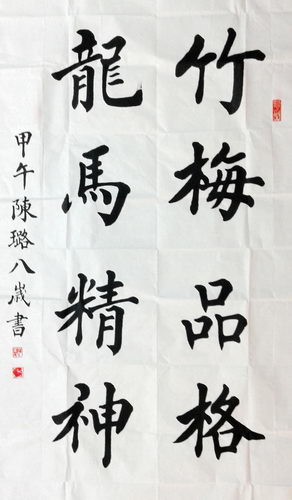 竹梅品格
龍馬精神
甲午陳璐八歲書